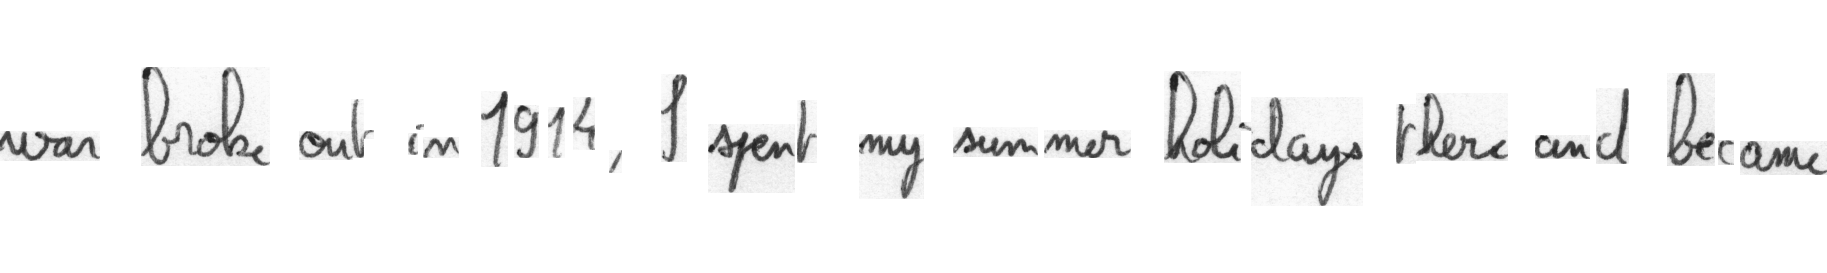 war broke out in 1914, I spent my summer holidays there and became